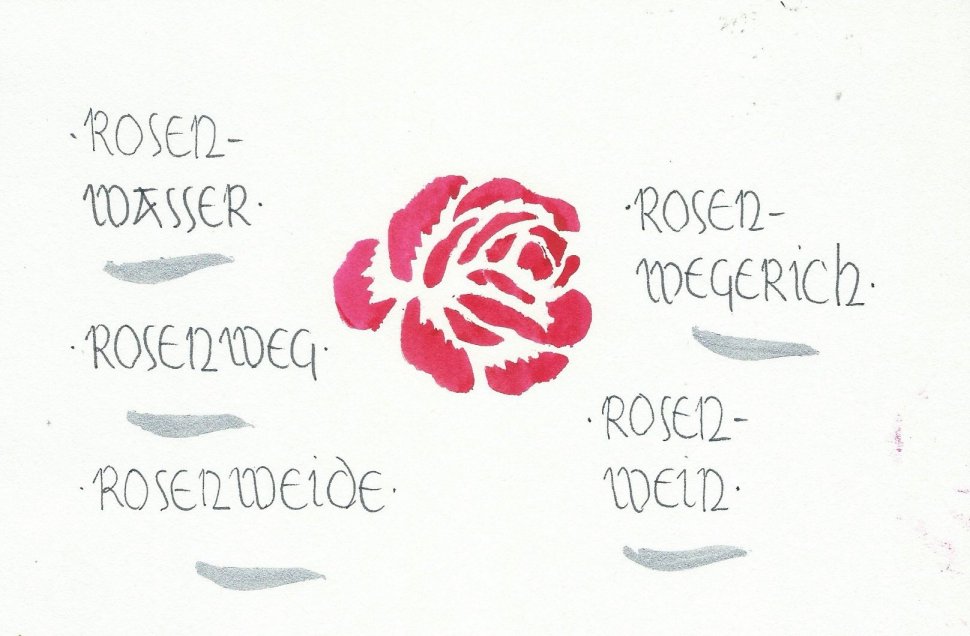 ·ROSEN-
WASSER·
·ROSENWEG·
·ROSENWEIDE·
·ROSEN-
WEGERiCh·
·ROSEN-
WEiN·